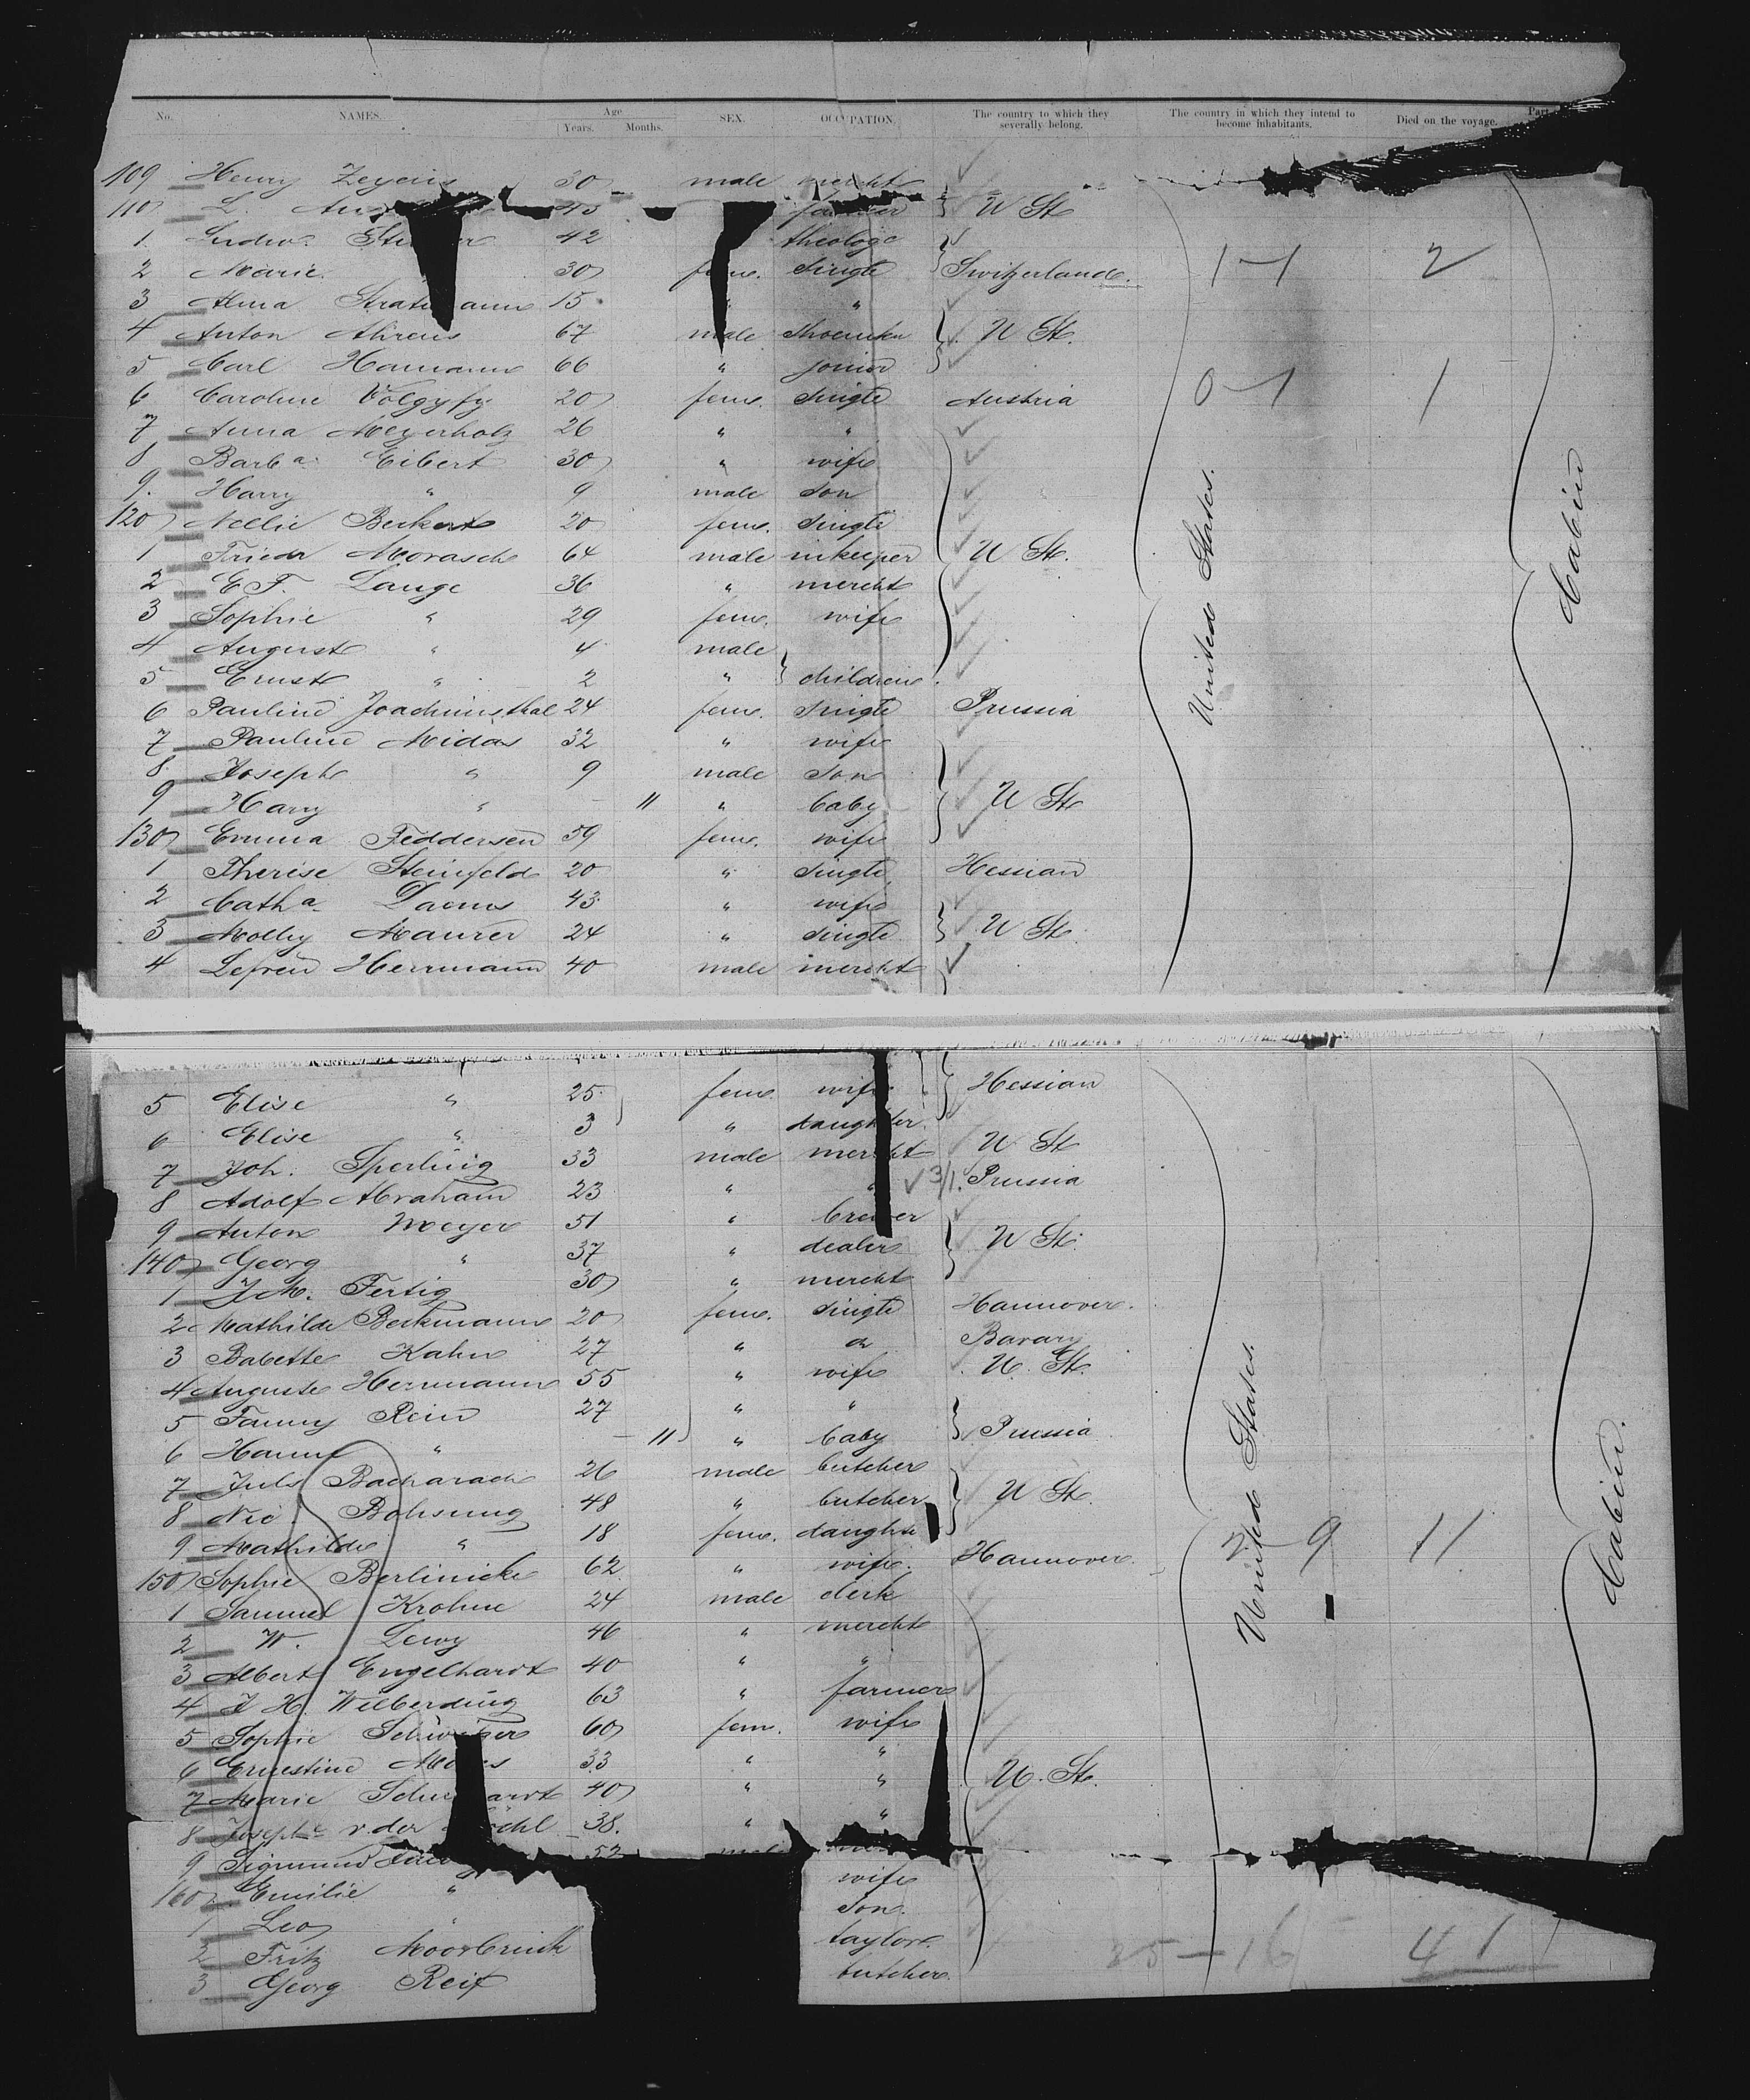 No. NAMES. Age Years. Months. SEX. OCCUPATION. The country to which they severally belong. The country in which they intend to become inhabitants. Died on the voyage. Part
109 Henry 30 male mercht
110 L. 43 farmer U St
1 42 theolog 1-1 2
2 Marie 30 fem. single Switzerland.
3 Alma 15 " "
4 Anton Ahrens 67 male U St.
5 Carl Hamann 66 "
6 Caroline 20 fem. single Austria 0-1 1
7 Anna Meyerholz 26 " "
8 Barba Eibert 30 " wife
9. Harry " 9 male son
120 Nellie Beckert 20 fem. single
1 Friedr Morasch 64 male inkeeper U St.
2 E F. Lange 36 " mercht
3 Sophie " 29 fem. wife
4 August " 4 male
5 Ernst " 2 " children
6 Pauline Joachimsthal 24 fem. single Prussia
7 Pauline Midas 32 " wife
8 Joseph " 9 male son
9 Harry " - 11 " baby U St
130 Emma Feddersen 59 fem. wife
1 Therese Steinfeld 20 " single Hessian
2 Catha Daems 43 " wife
3 Molly Maurer 24 " single U St.
4 Herrmann 40 male mercht
United States.
Cabin
5 Elise " 25 fem wife Hessian
6 Elise " 3 " daughter
7 Joh. Sperling 33 male mercht U St
8 Adolf Abraham 23 " " 3/1. Prussia
9 Anton Meyer 51 " brewer
140 Georg " 37 " dealer U St.
1 J M. Fertig 30 " mercht
2 Mathilde Beckmann 20 fem. single Hannover.
3 Babette Kahn 27 " do Bavary
4 Auguste Herrmann 55 " wife U. St.
5 Fanny Rein 27 " "
6 Hanne " - 11 " baby Prussia
7 Juls Bacharach 26 male butcher
8 Nic. Bohsung 48 " butcher U St.
9 Mathilde " 18 fem. daughter 2 9 11
150 Sophie Berlinicke 62 " wife. Hannover.
1 Samuel Krohne 24 male clerk
2 W. Lewy 46 " mercht
3 Albert Engelhardt 40 " "
4 J H. Wilberding 63 " farmer
5 Sophie 60 fem. wife
6 Ernestine 33 " "
7 Marie 40 " " U. St.
8 v. der 38. " "
9 Sigmund 52
160 Emilie " wife
1 Leo " son.
2 Fritz Moorbrink taylor. 25-16 41
3 Georg Reif butcher.
United States.
Cabin.